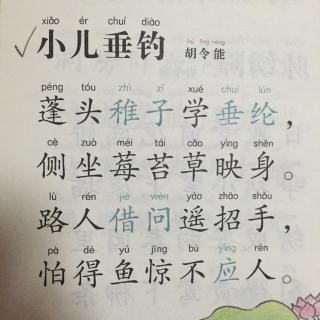 xiǎo ér chuí diào
✓小儿垂钓
hú lìng néng
胡令能
péng tóu zhì zǐ xué chuí lún
蓬头稚子学垂纶，
cè zuò méi tái cǎo yìng shēn
侧坐莓苔草映身。
lù rén jiè wèn yáo zhāo shǒu
路人借问遥招手，
pà dé yú jīng bù yìng rén
怕得鱼惊不应人。